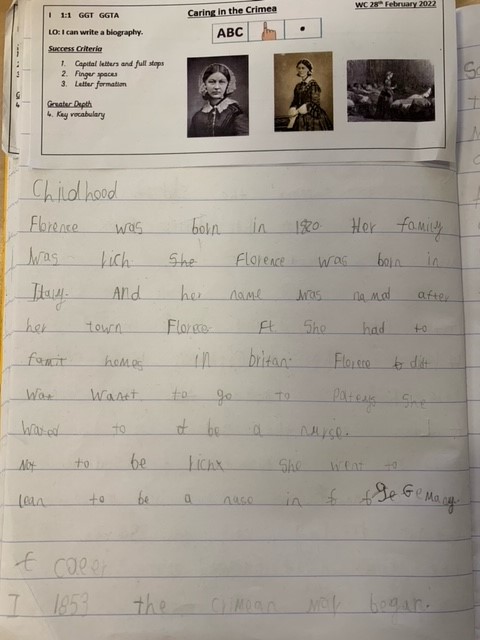 I 1:1 GGT GGTA
Caring in the Crimea
WC 28th February 2022
LO: I can write a biography.
ABC
Success Criteria
1. Capital letters and full stops
2. Finger spaces
3. Letter formation
Greater Depth
4. Key vocabulary
Childhood
Florence was born in 1820. Her family
was rich She Florence was born in
Itaiy. And her name was na mad after
her town Florece Ft She had to
famit homes in britan. Florece diti
Wantt to go to Pateys She
to be a nurse.
to be rich She went to
lean to be a nace in Ge Gemany.
1853 the crimean began.